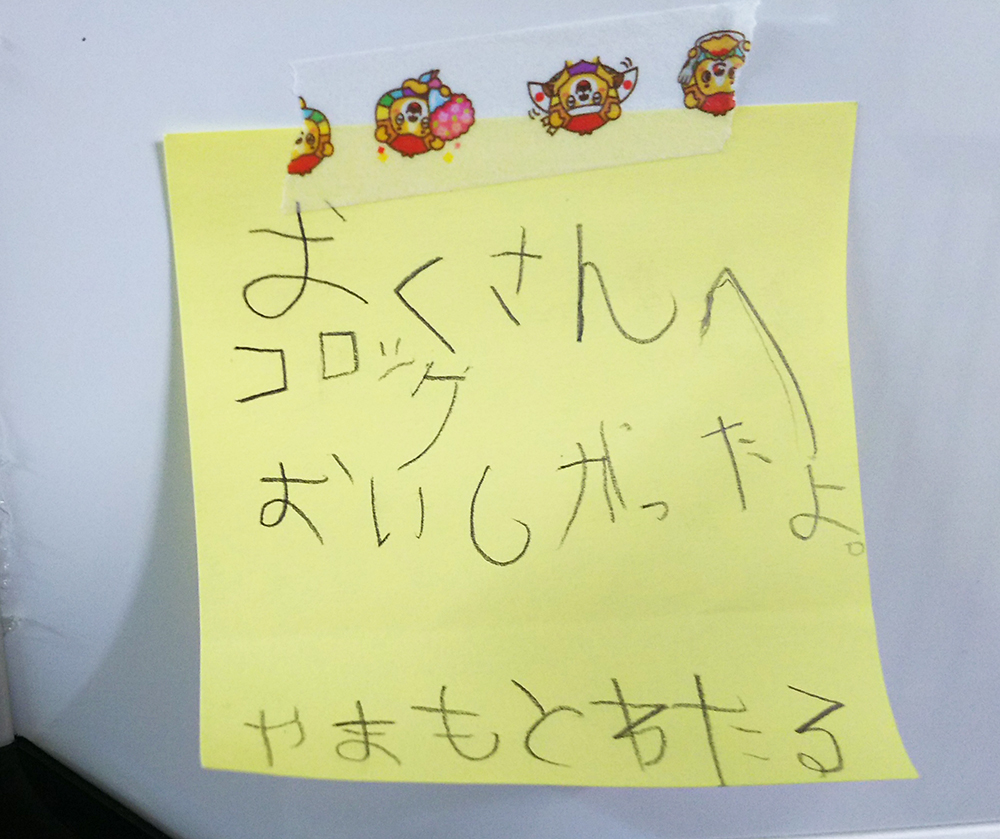 おくさんへ
コロッケ
おいしかったよ。
やまもとわたる